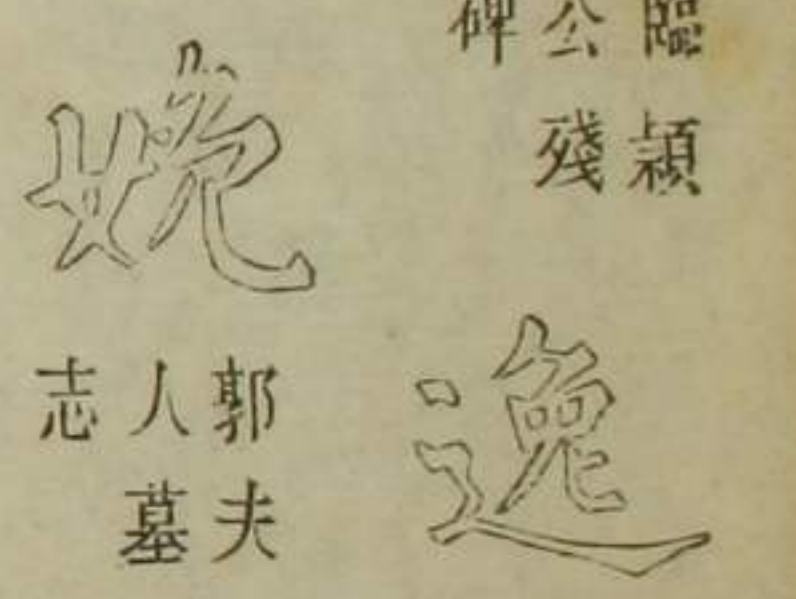 臨穎
公殘
碑
逸
娩
郭夫
人墓
志